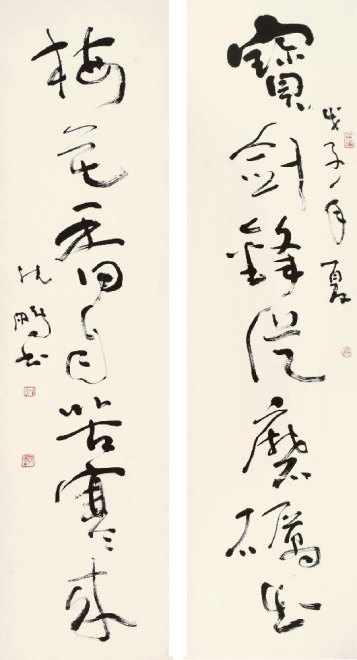 寶劍鋒從磨礪出
戊子年夏
梅花香自苦寒來
沈鵬書